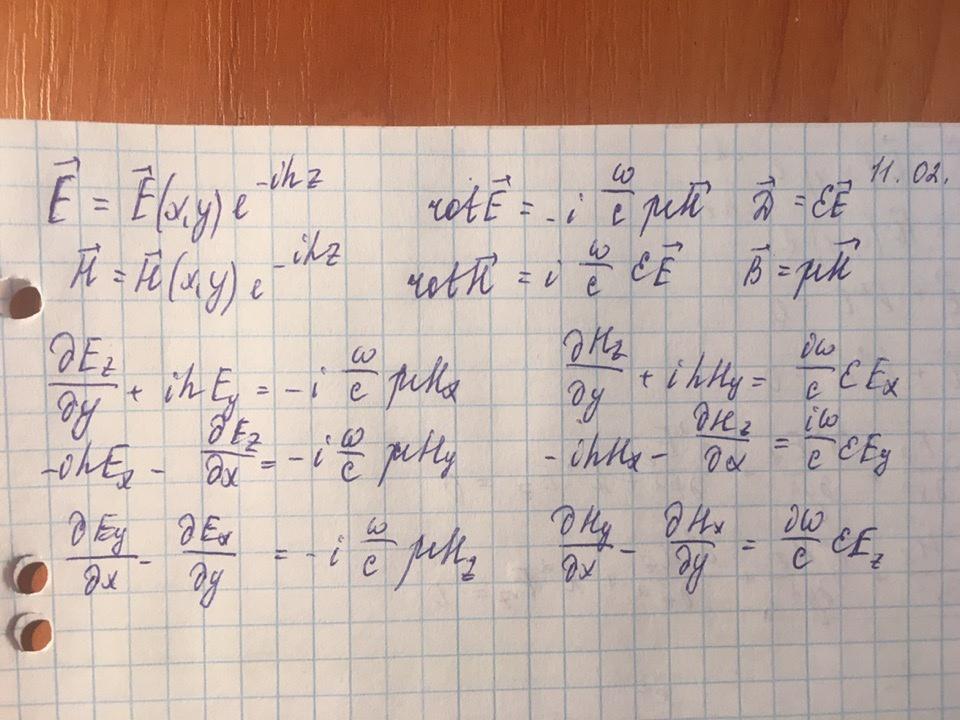 11.02.
$\vec{E} = \vec{E}(x,y) e^{-ihz}$ $rot\vec{E} = -i \frac{\omega}{c} \mu\vec{H}$ $\vec{D} = \varepsilon\vec{E}$
$\vec{H} = \vec{H}(x,y) e^{-ihz}$ $rot\vec{H} = i \frac{\omega}{c} \varepsilon\vec{E}$ $\vec{B} = \mu\vec{H}$
$\frac{\partial E_z}{\partial y} + ihE_y = -i \frac{\omega}{c} \mu H_x$ $\frac{\partial H_z}{\partial y} + ihH_y = \frac{i\omega}{c} \varepsilon E_x$
$-ihE_x - \frac{\partial E_z}{\partial x} = -i \frac{\omega}{c} \mu H_y$ $-ihH_x - \frac{\partial H_z}{\partial x} = \frac{i\omega}{c} \varepsilon E_y$
$\frac{\partial E_y}{\partial x} - \frac{\partial E_x}{\partial y} = -i \frac{\omega}{c} \mu H_z$ $\frac{\partial H_y}{\partial x} - \frac{\partial H_x}{\partial y} = \frac{i\omega}{c} \varepsilon E_z$